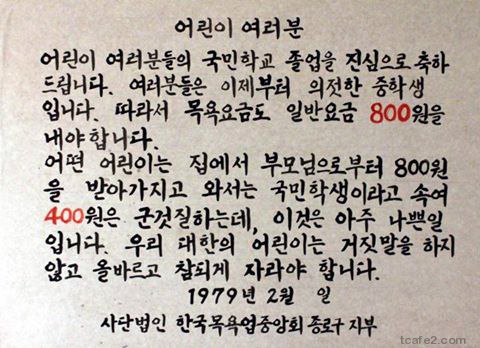 어린이 여러분
어린이 여러분들의 국민학교 졸업을 진심으로 축하
드립니다. 여러분들은 이제부터 의젓한 중학생
입니다. 따라서 목욕요금도 일반요금 800원을
내야합니다.
어떤 어린이는 집에서 부모님으로부터 800원
을 받아가지고 와서는 국민학생이라고 속여
400원은 군것질하는데, 이것은 아주 나쁜일
입니다. 우리 대한의 어린이는 거짓말을 하지
않고 올바르고 참되게 자라야 합니다.
1979년 2월 일
사단법인 한국목욕업중앙회 종로구 지부
tcafe2.com